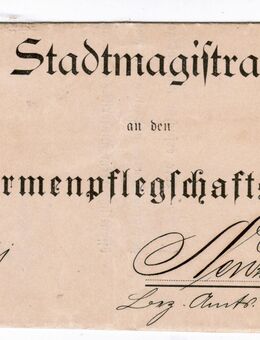 Stadtmagistra
an den
rmenpflegschafts
Bez. Amts.